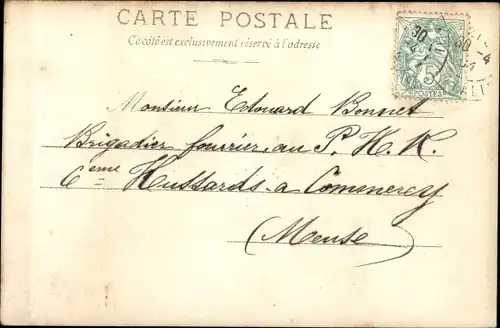 CARTE POSTALE
Ce côté est exclusivement réservé à l'adresse
Monsieur Edouard Bonnet
Brigadier fourrier au P. H. R.
6eme Hussards a Commercy
(Meuse)
5
POSTES